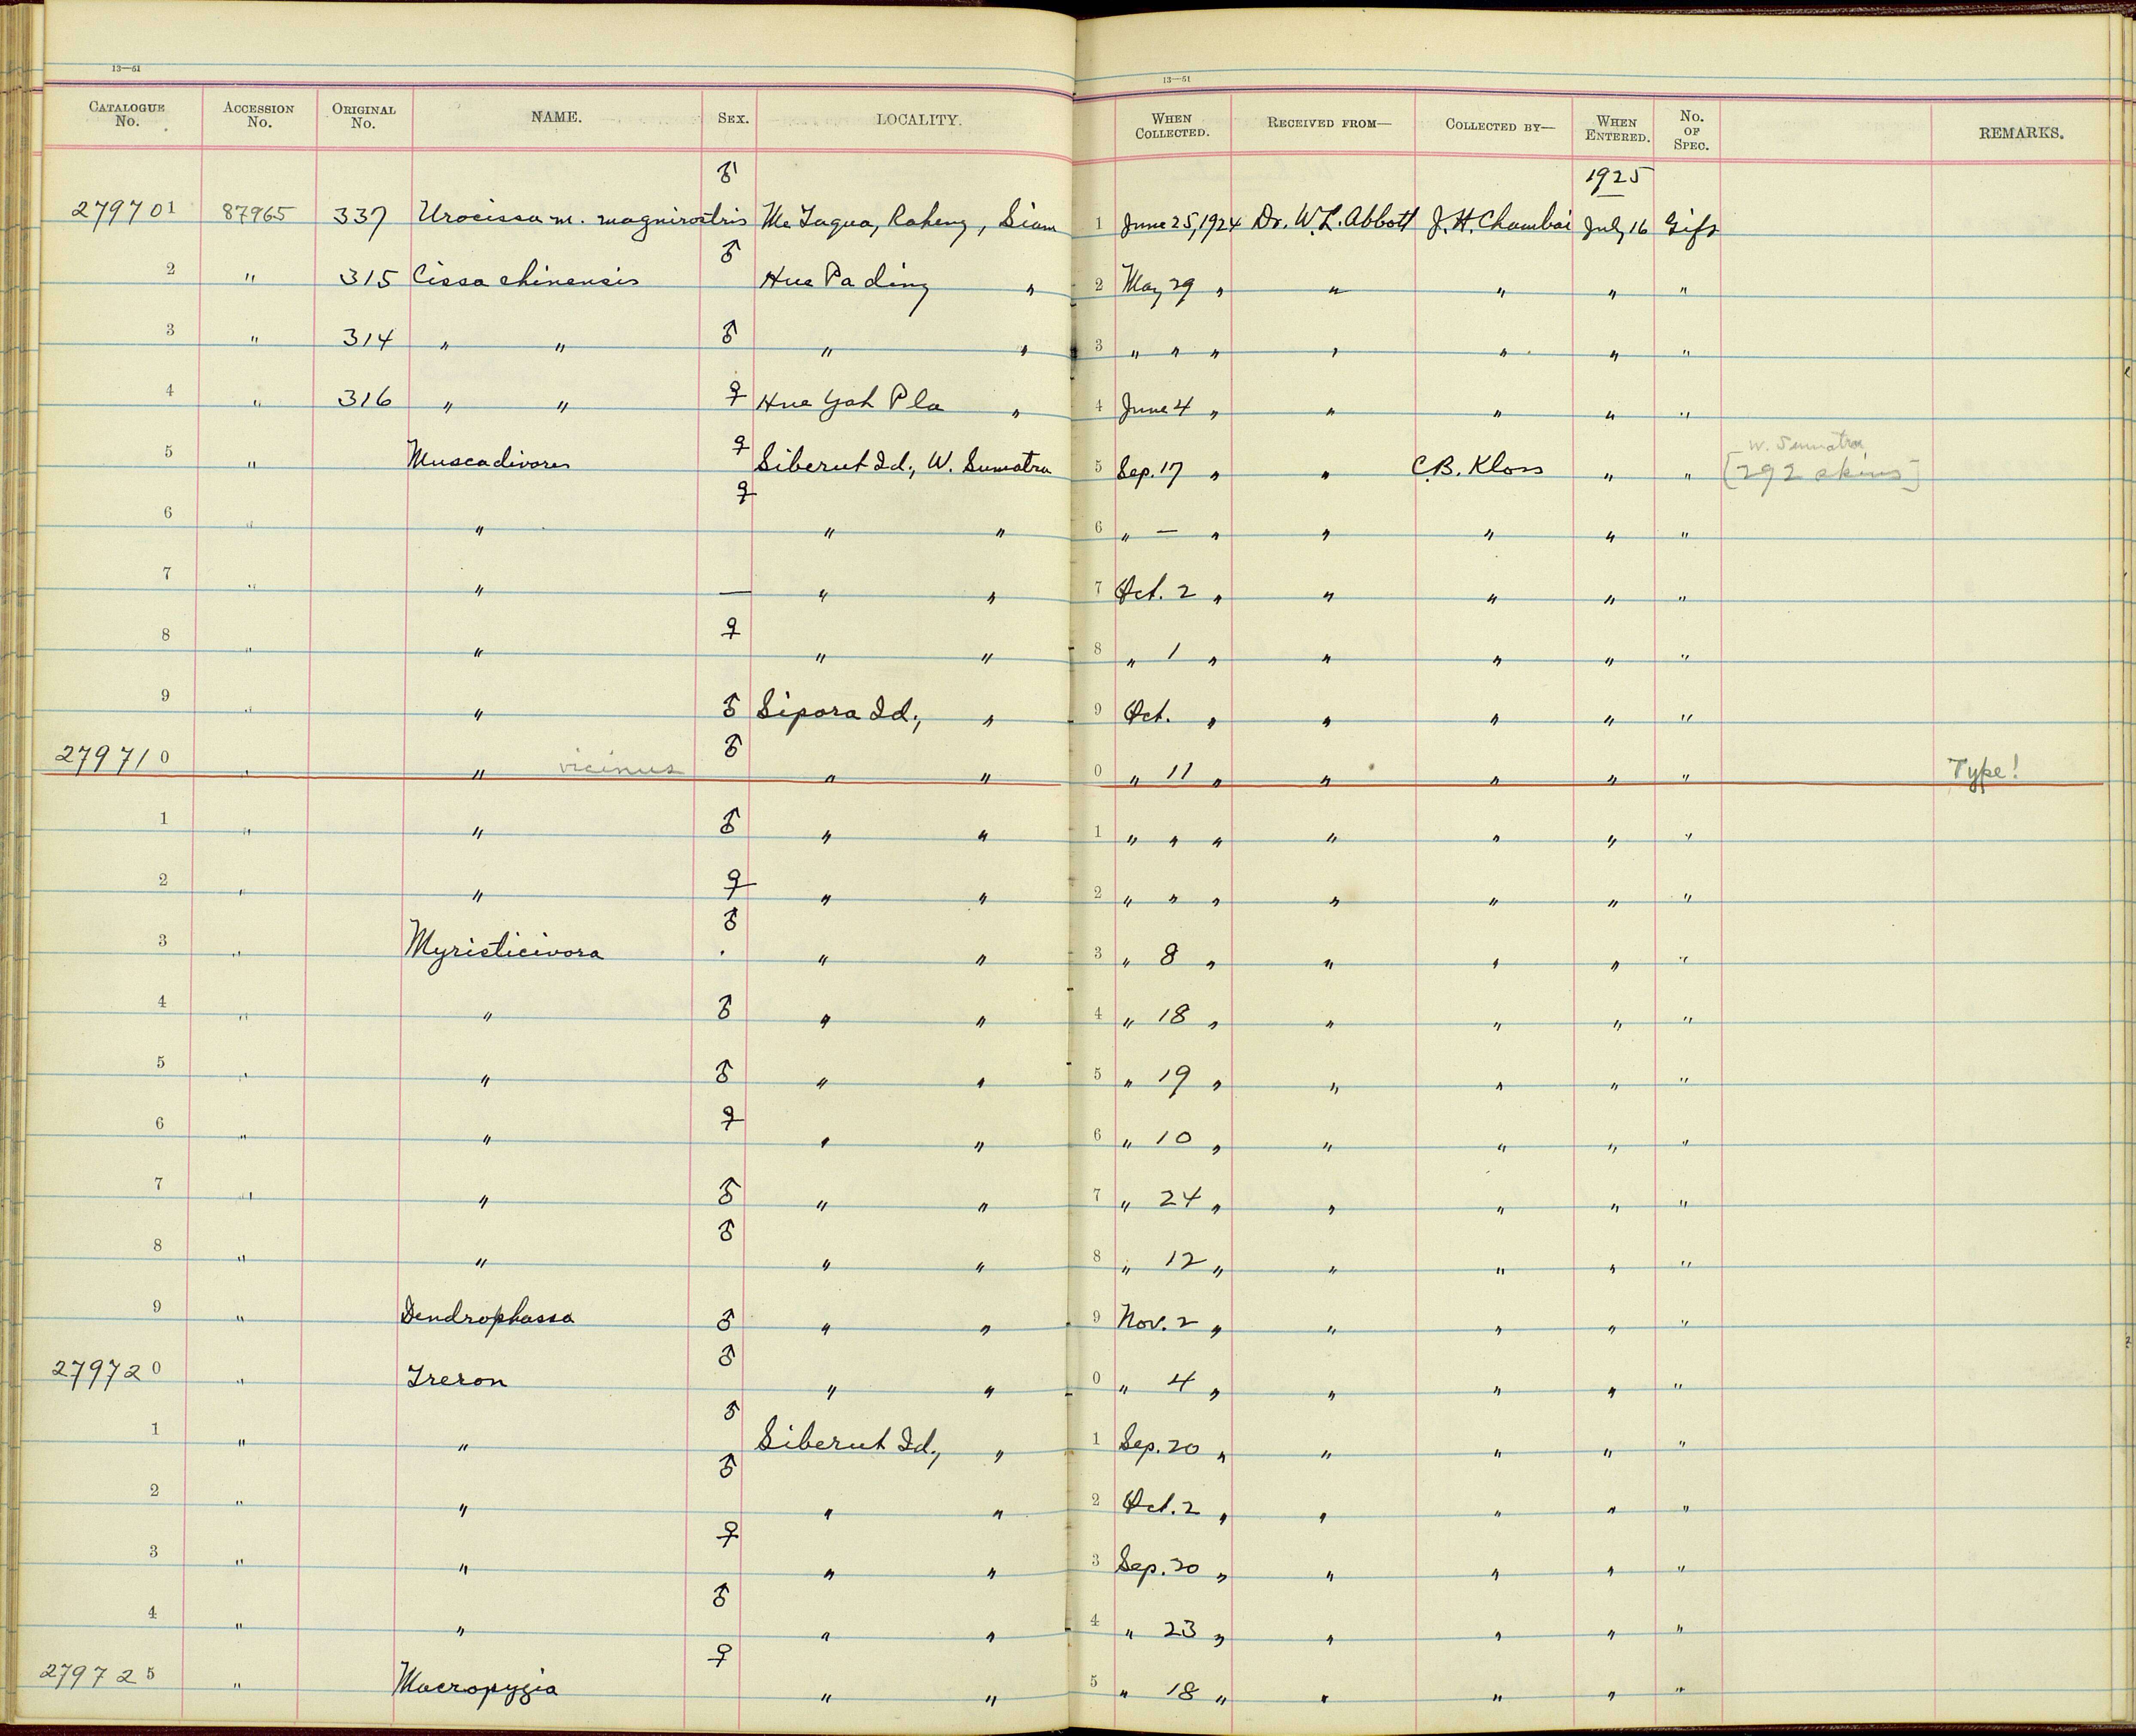 13—51 13—51
CATALOGUE No. ACCESSION No. ORIGINAL No. NAME. SEX. LOCALITY. WHEN COLLECTED. RECEIVED FROM— COLLECTED BY— WHEN ENTERED. No. OF SPEC. REMARKS.
♂ 1925
279701 87965 337 Urocissa m. magnirostris Me Taqua, Raheng, Siam 1 June 25, 1924 Dr. W. L. Abbott J. H. Chambai July 16 Gift
2 " 315 Cissa chinensis ♂ Hue Pa ding " 2 May 29 " " " " "
3 " 314 " " ♂ " " 3 " " " " " " "
4 " 316 " " ♀ Hue Yah Pla " 4 June 4 " " " " "
5 " Muscadivores ♀ Siberut Id., W. Sumatra 5 Sep. 17 " " C.B. Kloss " " W. Sumatra [292 skins]
6 " " ♀ " " 6 " — " " " " "
7 " " — " " 7 Oct. 2 " " " " "
8 " " ♀ " " 8 " 1 " " " " "
9 " " ♂ Sipora Id., " 9 Oct. " " " " "
279710 " " vicinus ♂ " " 0 " 11 " " " " " Type!
1 " " ♂ " " 1 " " " " " " "
2 " " ♀ " " 2 " " " " " " "
3 " Myristicivora ♂ " " 3 " 8 " " " " "
4 " " ♂ " " 4 " 18 " " " " "
5 " " ♂ " " 5 " 19 " " " " "
6 " " ♀ " " 6 " 10 " " " " "
7 " " ♂ " " 7 " 24 " " " " "
8 " " ♂ " " 8 " 12 " " " " "
9 " Dendrophassa ♂ " " 9 Nov. 2 " " " " "
279720 " Treron ♂ " " 0 " 4 " " " " "
1 " " ♂ Siberut Id., " 1 Sep. 20 " " " " "
2 " " ♂ " " 2 Oct. 2 " " " " "
3 " " ♀ " " 3 Sep. 20 " " " " "
4 " " ♂ " " 4 " 23 " " " " "
279725 " Macropygia ♀ " " 5 " 18 " " " " "